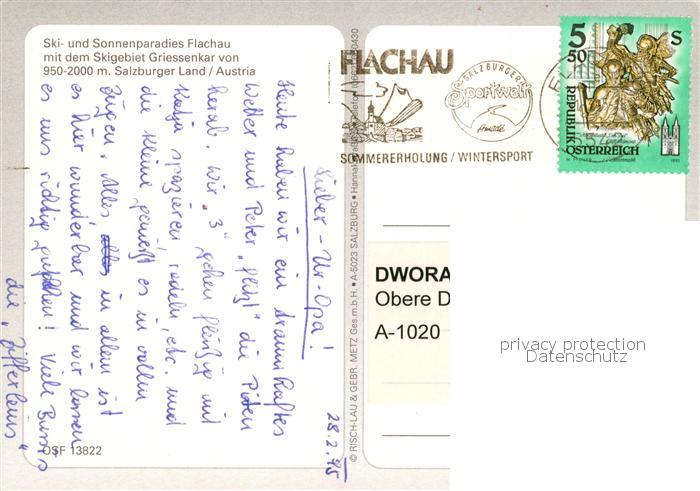 Ski- und Sonnenparadies Flachau
mit dem Skigebiet Griessenkar von
950-2000 m. Salzburger Land / Austria
28.2.95
Lieber-Ur-Opa!
Heute haben wir ein traumhaftes
Wetter und Peter „flitzt" die Pisten
herab. Wir „3" gehen fleißig mit
Katja spazieren, rodeln, etc. und
die kleine genießt es in vollen
Zügen. Alles in allem ist
es hier wunderbar und wir lassen
es uns richtig gutgehen! Viele Bussis
die „Zifferleins"
OSF 13822
© RISCH-LAU & GEBR. METZ Ges.m.b.H. • A-5023 SALZBURG •
FLACHAU
SALZBURGER
Sportwelt
Amadé
SOMMERERHOLUNG / WINTERSPORT
5 50 S
REPUBLIK
ÖSTERREICH
DWORA
Obere D
A-1020
privacy protection
Datenschutz